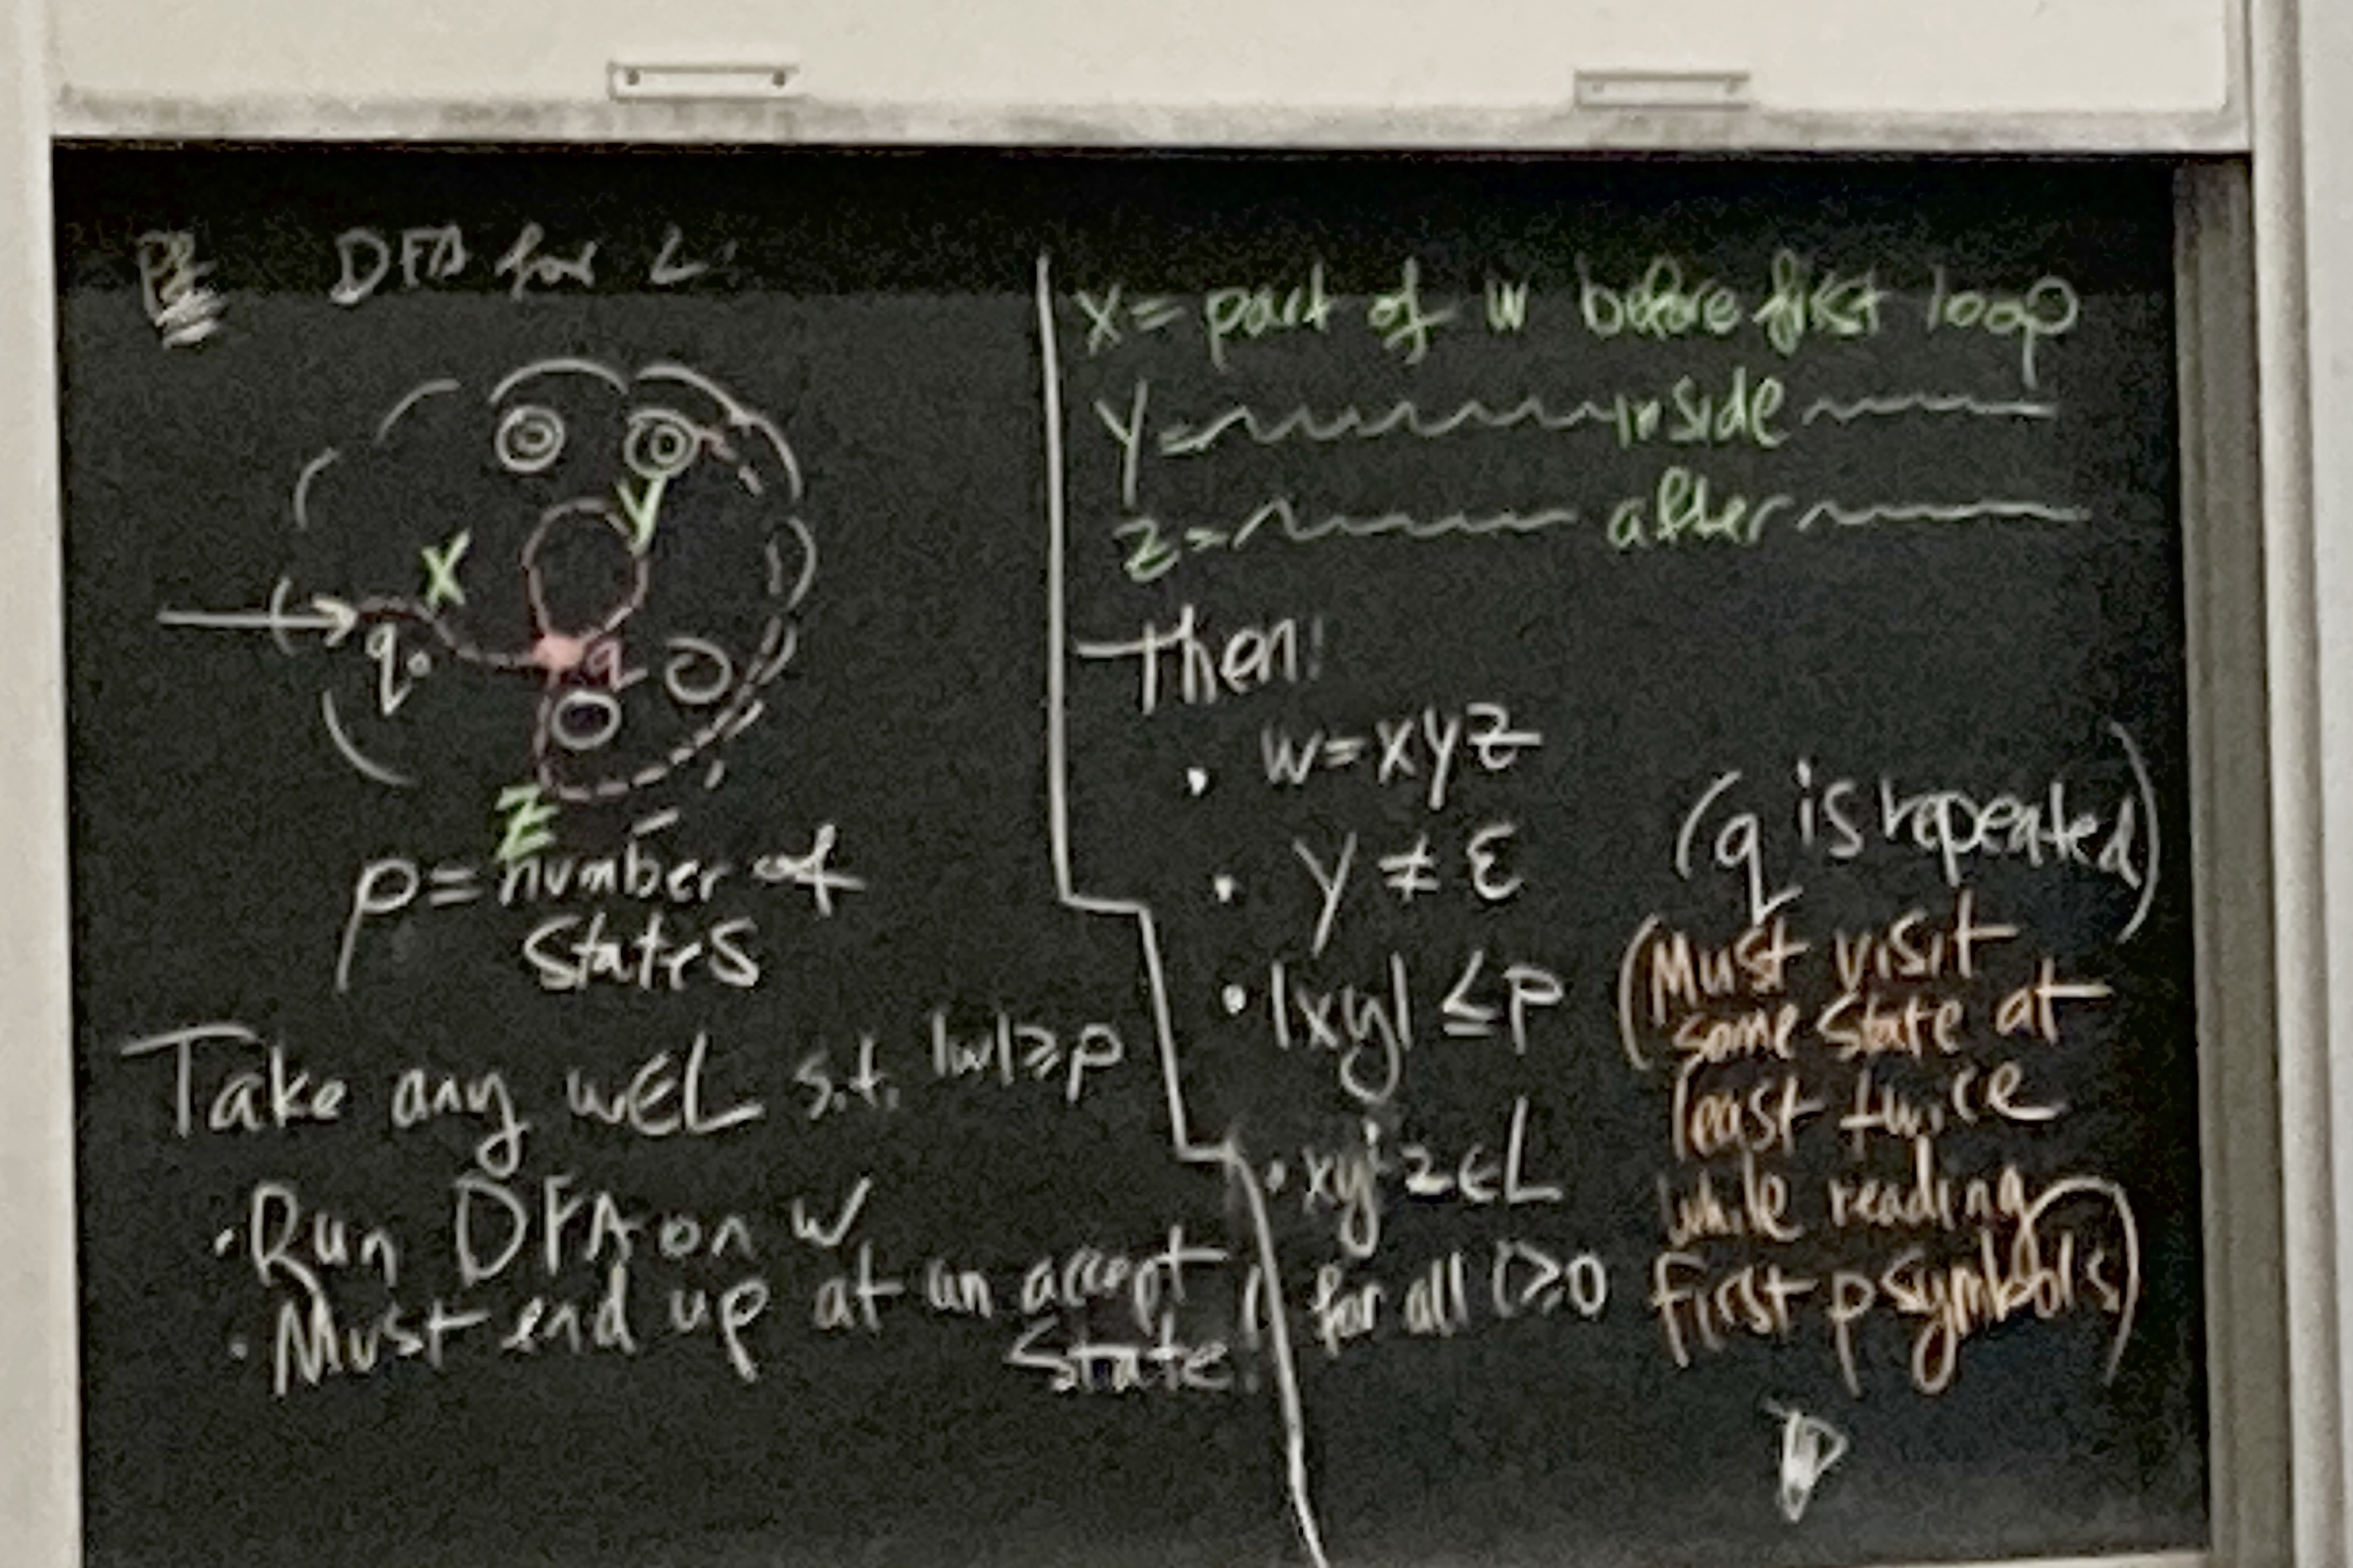 Pf DFA for L:
X
y
q₀
q
z
p = number of
states
Take any w∈L s.t. |w|≥p
· Run DFA on w
· Must end up at an accept
state.
X = part of w before first loop
y = inside
z = after
Then:
· w=xyz
· y ≠ ε (q is repeated)
· |xy| ≤ p (Must visit
some state at
least twice
while reading
first p symbols)
· xyⁱz∈L
for all i≥0